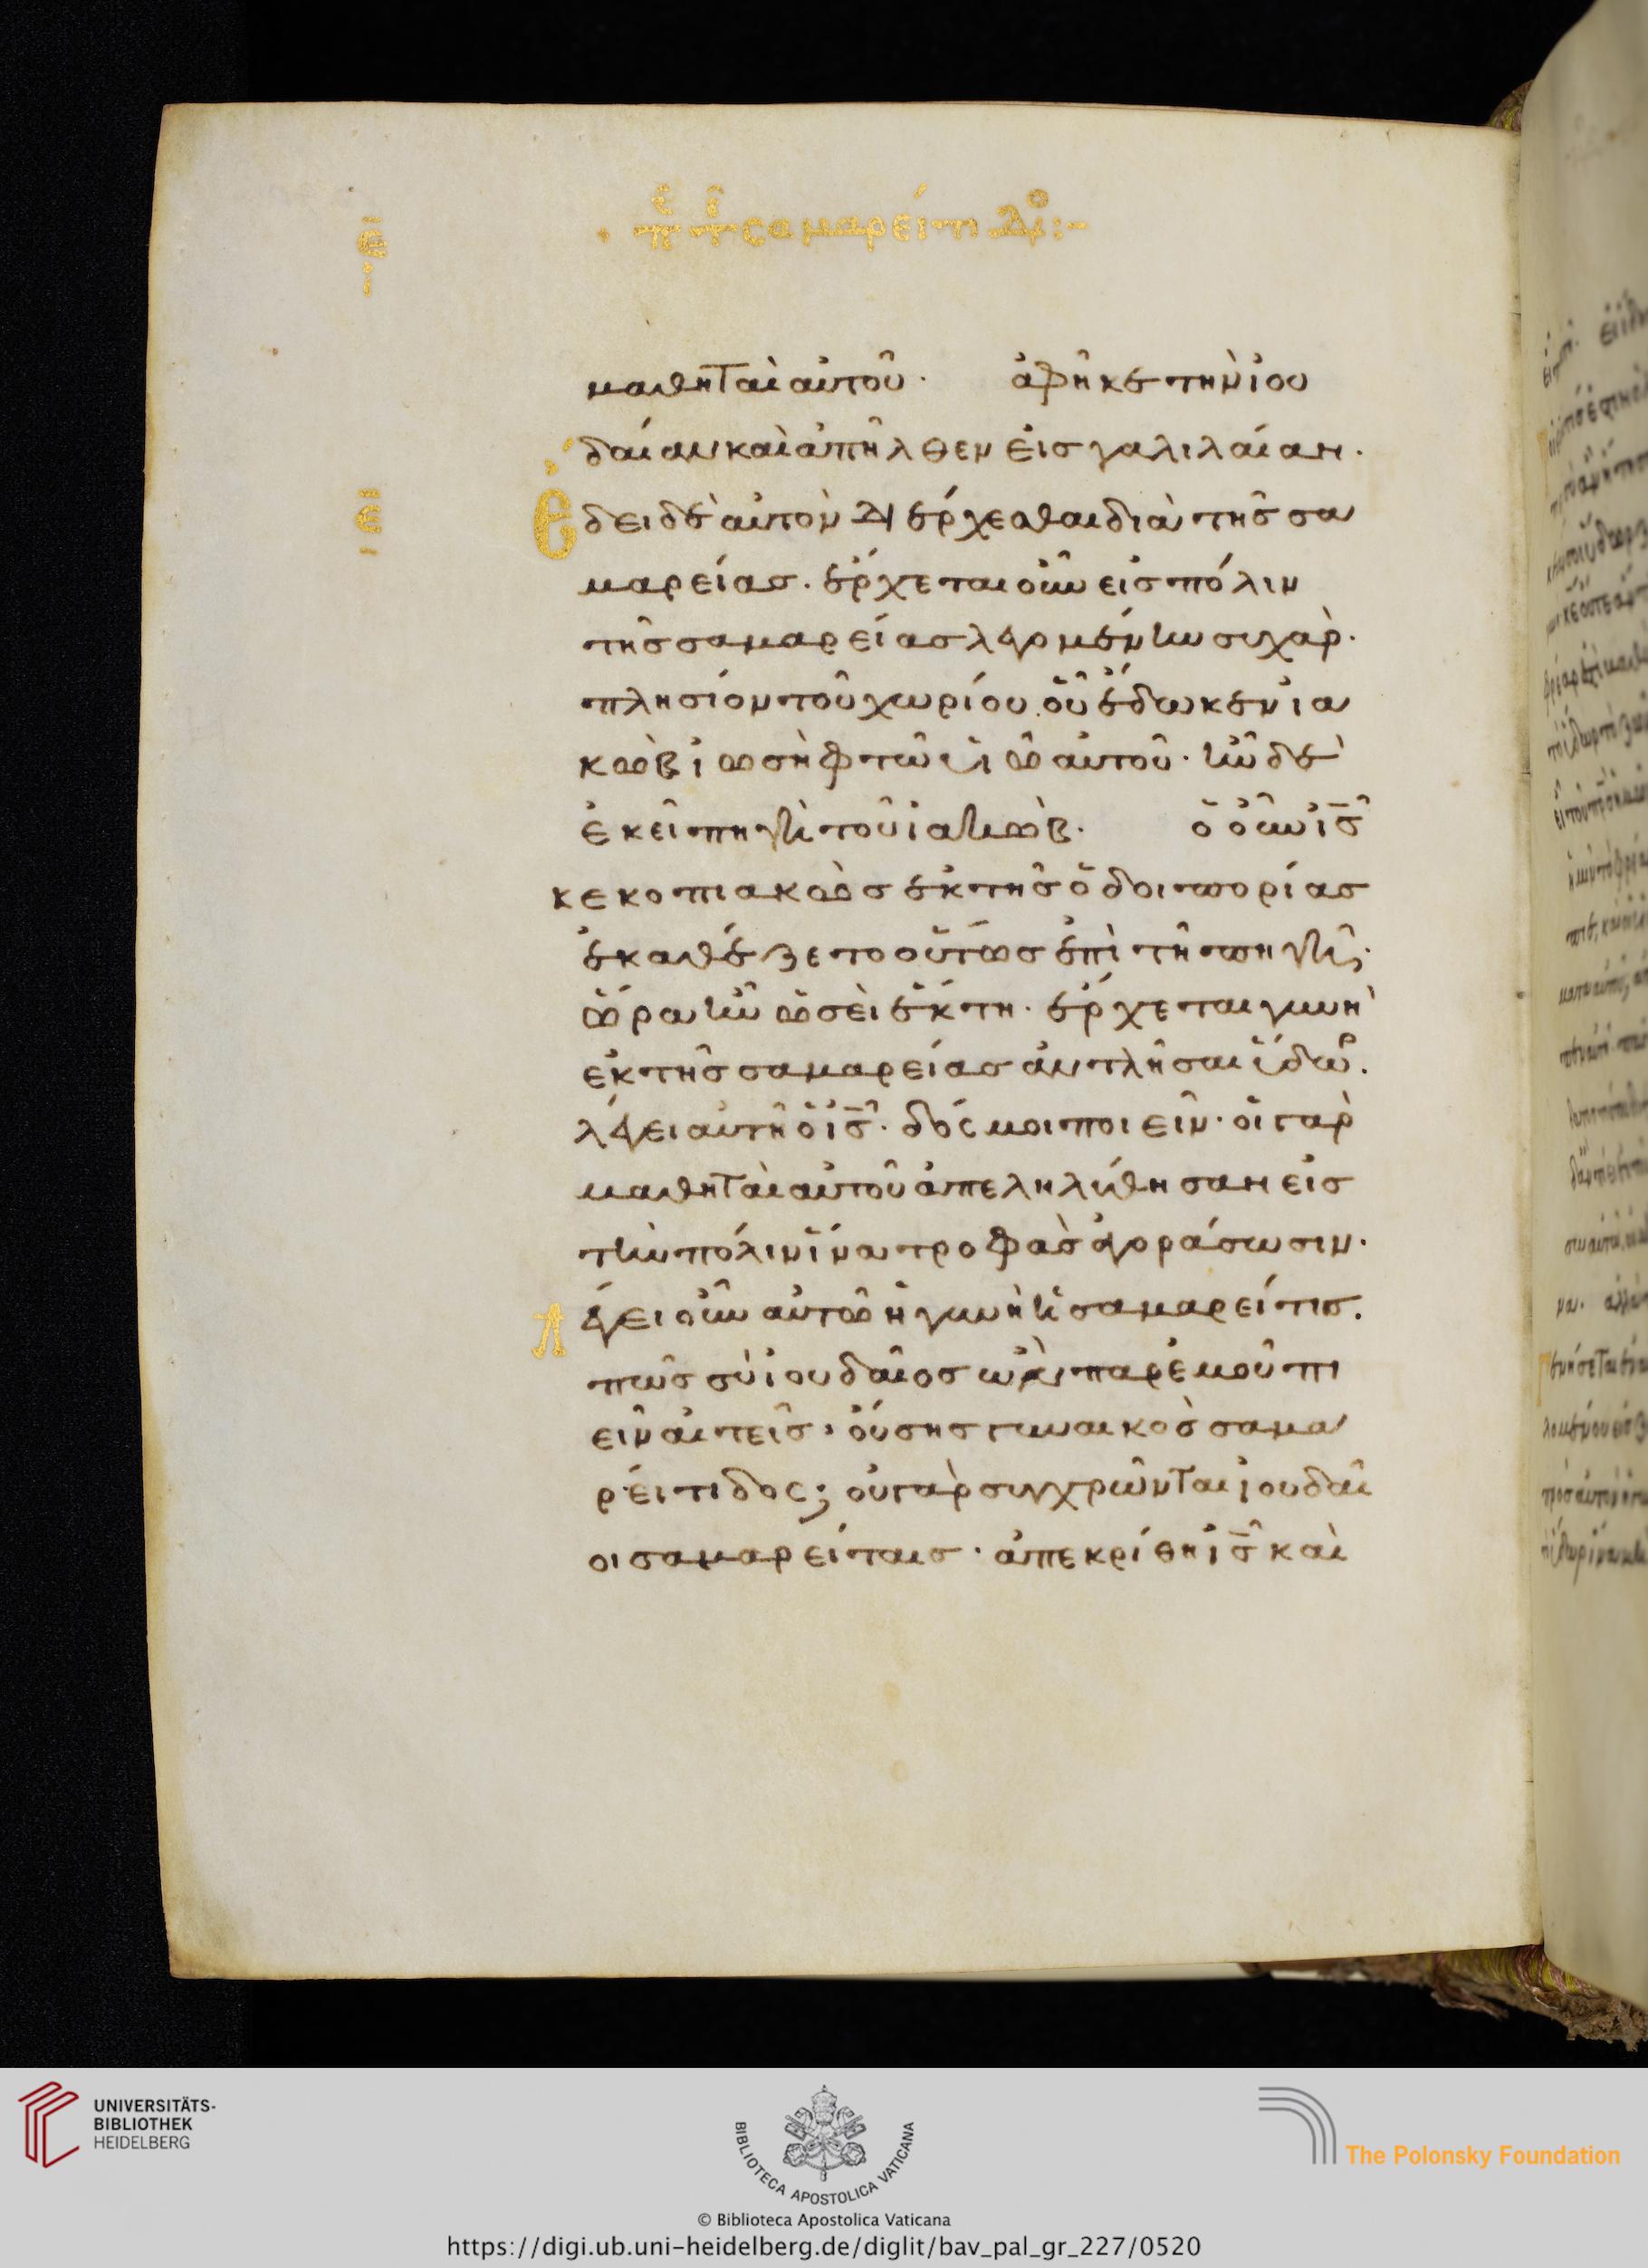 μαθηταὶ αὐτοῦ· ἀφῆκε τὴν ἰου
δαίαν καὶ ἀπῆλθεν εἰς γαλιλαίαν.
Ἔδει δὲ αὐτὸν διέρχεσθαι διὰ τῆς σα
μαρείας. ἔρχεται οὖν εἰς πόλιν
τῆς σαμαρείας λεγομένην συχὰρ.
πλησίον τοῦ χωρίου οὗ ἔδωκεν ἰα
κὼβ ἰωσὴφ τῶ υἱῶ αὐτοῦ· ἦν δὲ
ἐκεῖ πηγὴ τοῦ ἰακὼβ. ὁ οὖν ἰς̅
κεκοπιακὼς ἐκ τῆς ὁδοιπορίας
ἐκαθέζετο οὕτως ἐπὶ τῆ πηγῆ·
ὥρα ἦν ὡσεὶ ἕκτη. ἔρχεται γυνὴ
ἐκ τῆς σαμαρείας ἀντλῆσαι ὕδωρ.
λέγει αὐτῆ ὁ ἰς̅. δός μοι ποιεῖν· οἱ γὰρ
μαθηταὶ αὐτοῦ ἀπεληλύθησαν εἰς
τὴν πόλιν ἵνα τροφὰς ἀγοράσωσιν.
Λέγει οὖν αὐτῶ ἡ γυνὴ ἡ σαμαρεῖτις.
πῶς σὺ ἰουδαῖος ὢν παρ' ἐμοῦ πι
εῖν αἰτεῖς, οὔσης γυναικὸς σαμα
ρείτιδος; οὐ γὰρ συγχρῶνται ἰουδαῖ
οι σαμαρείταις. ἀπεκρίθη ἰς̅ καὶ
UNIVERSITÄTS-
BIBLIOTHEK
HEIDELBERG
BIBLIOTECA APOSTOLICA VATICANA
The Polonsky Foundation
© Biblioteca Apostolica Vaticana
https://digi.ub.uni-heidelberg.de/diglit/bav_pal_gr_227/0520